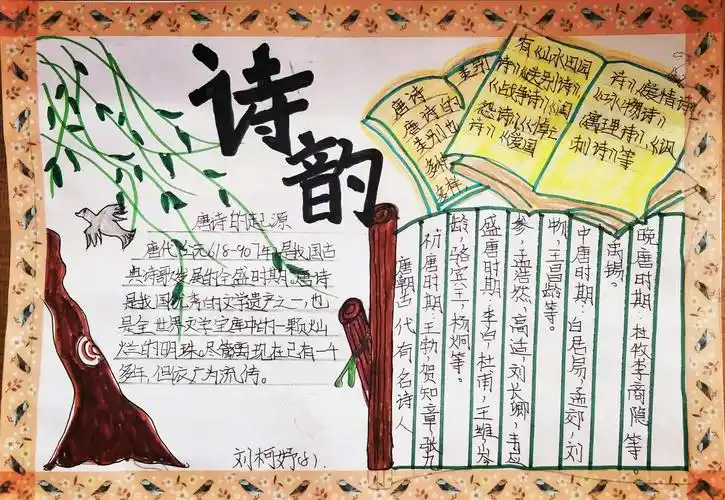 诗韵
唐诗的起源
唐代公元618-907年是我国古
典诗歌发展的全盛时期。唐诗
是我国优秀的文学遗产之一,也
是全世界文学宝库中的一颗灿
烂的明珠。尽管离现在已有一千
多年,但依广为流传。
刘柯妤
唐诗
唐诗的
类别也
多种
多样
类别
有《山水田园
诗》《送别诗》
《战争诗》《闺
怨诗》《悼亡
诗》《爱国
诗》《爱情诗》
《咏物诗》
《寓理诗》《讽
刺诗》等
唐朝古代有名诗人
初唐时期:王勃,贺知章,张九
龄,骆宾王,杨炯等。
盛唐时期:李白,杜甫,王维,岑
参,孟浩然,高适,刘长卿,韦应
物,王昌龄等。
中唐时期:白居易,孟郊,刘
禹锡。
晚唐时期:杜牧李商隐等。